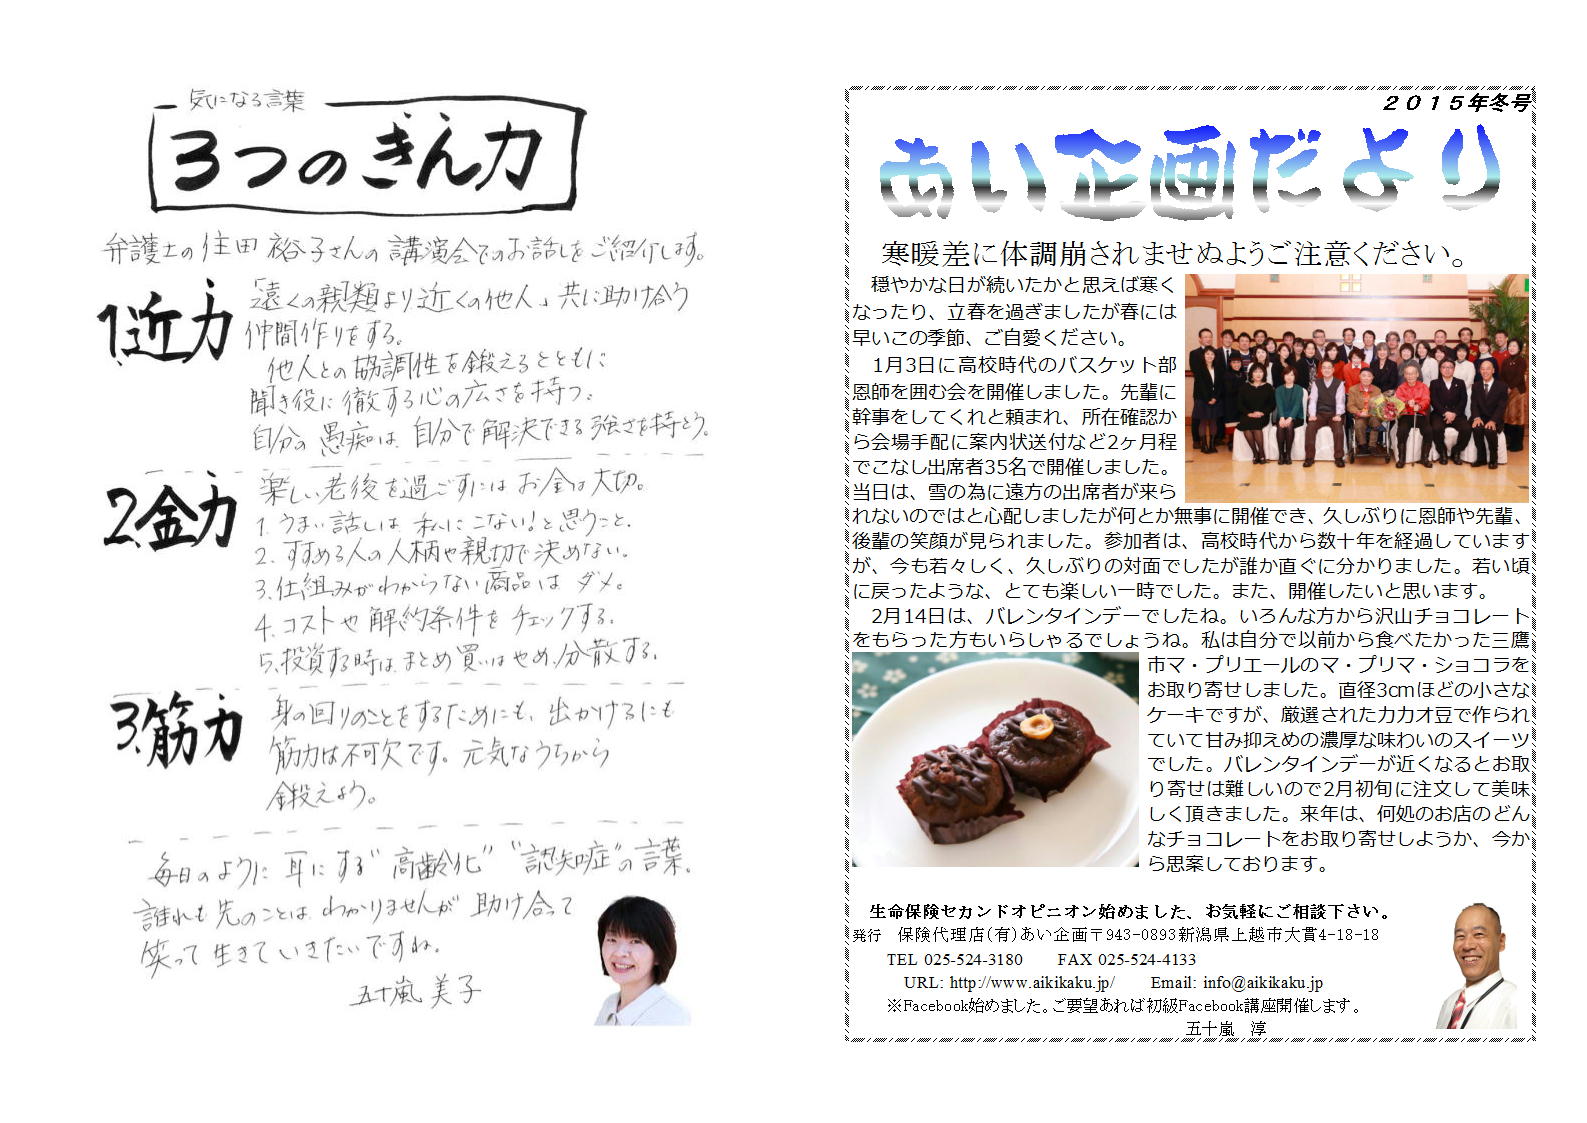 気になる言葉
3つのきん力
弁護士の住田裕子さんの講演会でのお話しをご紹介します。
1.近力
「遠くの親類より近くの他人」共に助け合う
仲間作りをする。
他人との協調性を鍛えるとともに
聞き役に徹する心の広さを持つ。
自分の愚痴は、自分で解決できる強さを持とう。
2.金力
楽しい老後を過ごすにはお金は大切。
1.うまい話しは私にこない!と思うこと。
2.すすめる人の人柄や親切で決めない。
3.仕組みがわからない商品はダメ。
4.コストや解約条件をチェックする。
5.投資する時は、まとめ買いはやめ、分散する。
3.筋力
身の回りのことをするためにも、出かけるにも
筋力は不可欠です。元気なうちから
鍛えよう。
毎日のように耳にする"高齢化""認知症"の言葉。
誰れも先のことは、わかりませんが助け合って
笑って生きていきたいですね。
五十嵐美子
2015年冬号
あい企画だより
寒暖差に体調崩されませぬようご注意ください。
穏やかな日が続いたかと思えば寒く
なったり、立春を過ぎましたが春には
早いこの季節、ご自愛ください。
1月3日に高校時代のバスケット部
恩師を囲む会を開催しました。先輩に
幹事をしてくれと頼まれ、所在確認か
ら会場手配に案内状送付など2ヶ月程
でこなし出席者35名で開催しました。
当日は、雪の為に遠方の出席者が来ら
れないのではと心配しましたが何とか無事に開催でき、久しぶりに恩師や先輩、
後輩の笑顔が見られました。参加者は、高校時代から数十年を経過しています
が、今も若々しく、久しぶりの対面でしたが誰か直ぐに分かりました。若い頃
に戻ったような、とても楽しい一時でした。また、開催したいと思います。
2月14日は、バレンタインデーでしたね。いろんな方から沢山チョコレート
をもらった方もいらしゃるでしょうね。私は自分で以前から食べたかった三鷹
市マ・プリエールのマ・プリマ・ショコラを
お取り寄せしました。直径3cmほどの小さな
ケーキですが、厳選されたカカオ豆で作られ
ていて甘み抑えめの濃厚な味わいのスイーツ
でした。バレンタインデーが近くなるとお取
り寄せは難しいので2月初旬に注文して美味
しく頂きました。来年は、何処のお店のどん
なチョコレートをお取り寄せしようか、今か
ら思案しております。
生命保険セカンドオピニオン始めました、お気軽にご相談下さい。
発行 保険代理店(有)あい企画〒943-0893新潟県上越市大貫4-18-18
TEL 025-524-3180 FAX 025-524-4133
URL: http://www.aikikaku.jp/ Email: info@aikikaku.jp
※Facebook始めました。ご要望あれば初級Facebook講座開催します。
五十嵐 淳